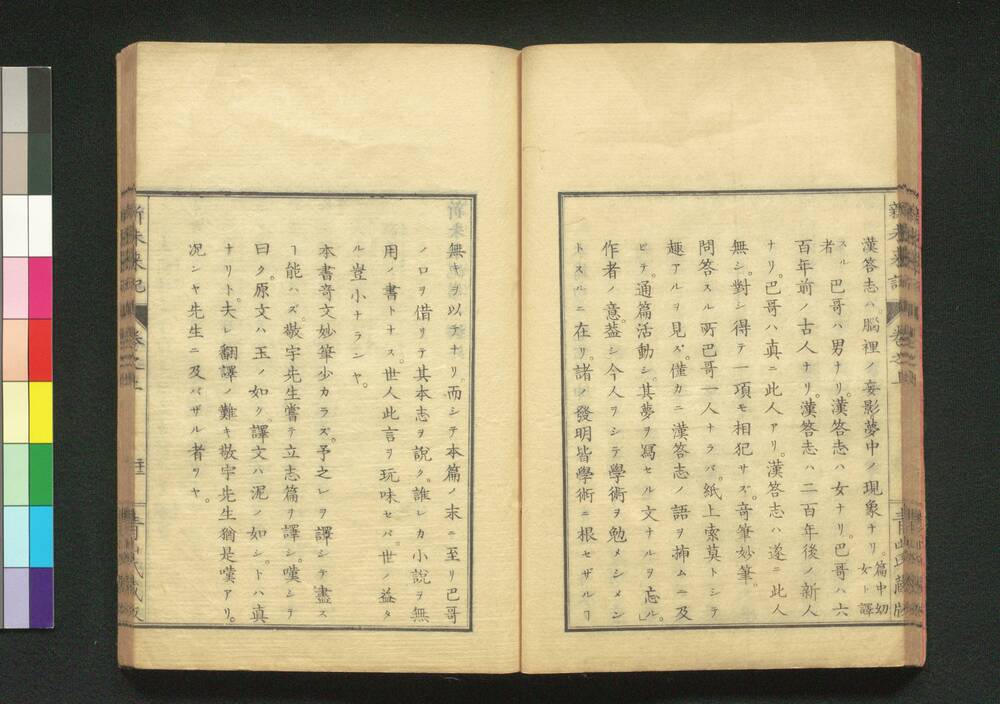 漢答志ハ腦裡ノ妄影夢中ノ現象ナリ。篇中幼女ト譯
スル者 巴哥ハ男ナリ。漢答志ハ女ナリ。巴哥ハ六
百年前ノ古人ナリ。漢答志ハ二百年後ノ新人
ナリ。巴哥ハ真ニ此人アリ。漢答志ハ遂ニ此人
無シ。對シ得テ一項モ相犯サズ。奇筆妙筆。
問答スル所巴哥一人ナラバ。紙上索莫トシテ
趣アルヲ見ズ。僅カニ漢答志ノ語ヲ揷ムニ及
ビテ。通篇活動シ。其夢ヲ寫セル文ナルヲ忘ル。」
作者ノ意。葢シ今人ヲシテ學術ヲ勉メシメン
トスルニ在リ。諸ノ發明皆學術ニ根セザルヿ
無キヲ以テナリ。而シテ本篇ノ末ニ至リ巴哥
ノ口ヲ借リテ其本志ヲ說ク。誰レカ小說ヲ無
用ノ書トナス。世人此言ヲ玩味セバ。世ノ益タ
ル豈小ナランヤ。
本書奇文妙筆少カラズ。予之レヲ譯シテ盡ス
ヿ能ハズ。敬宇先生嘗テ立志篇ヲ譯シ。嘆シテ
曰ク。原文ハ玉ノ如ク。譯文ハ泥ノ如シ。トハ真
ナリト。夫レ翻譯ノ難キ敬宇先生猶是嘆アリ。
况ンヤ先生ニ及バザル者ヲヤ。
新未來記